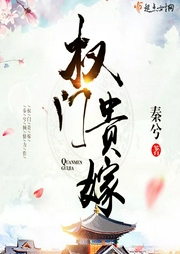 起点中文网
权门贵嫁
QUANMEN
GUIJIA
秦兮
著